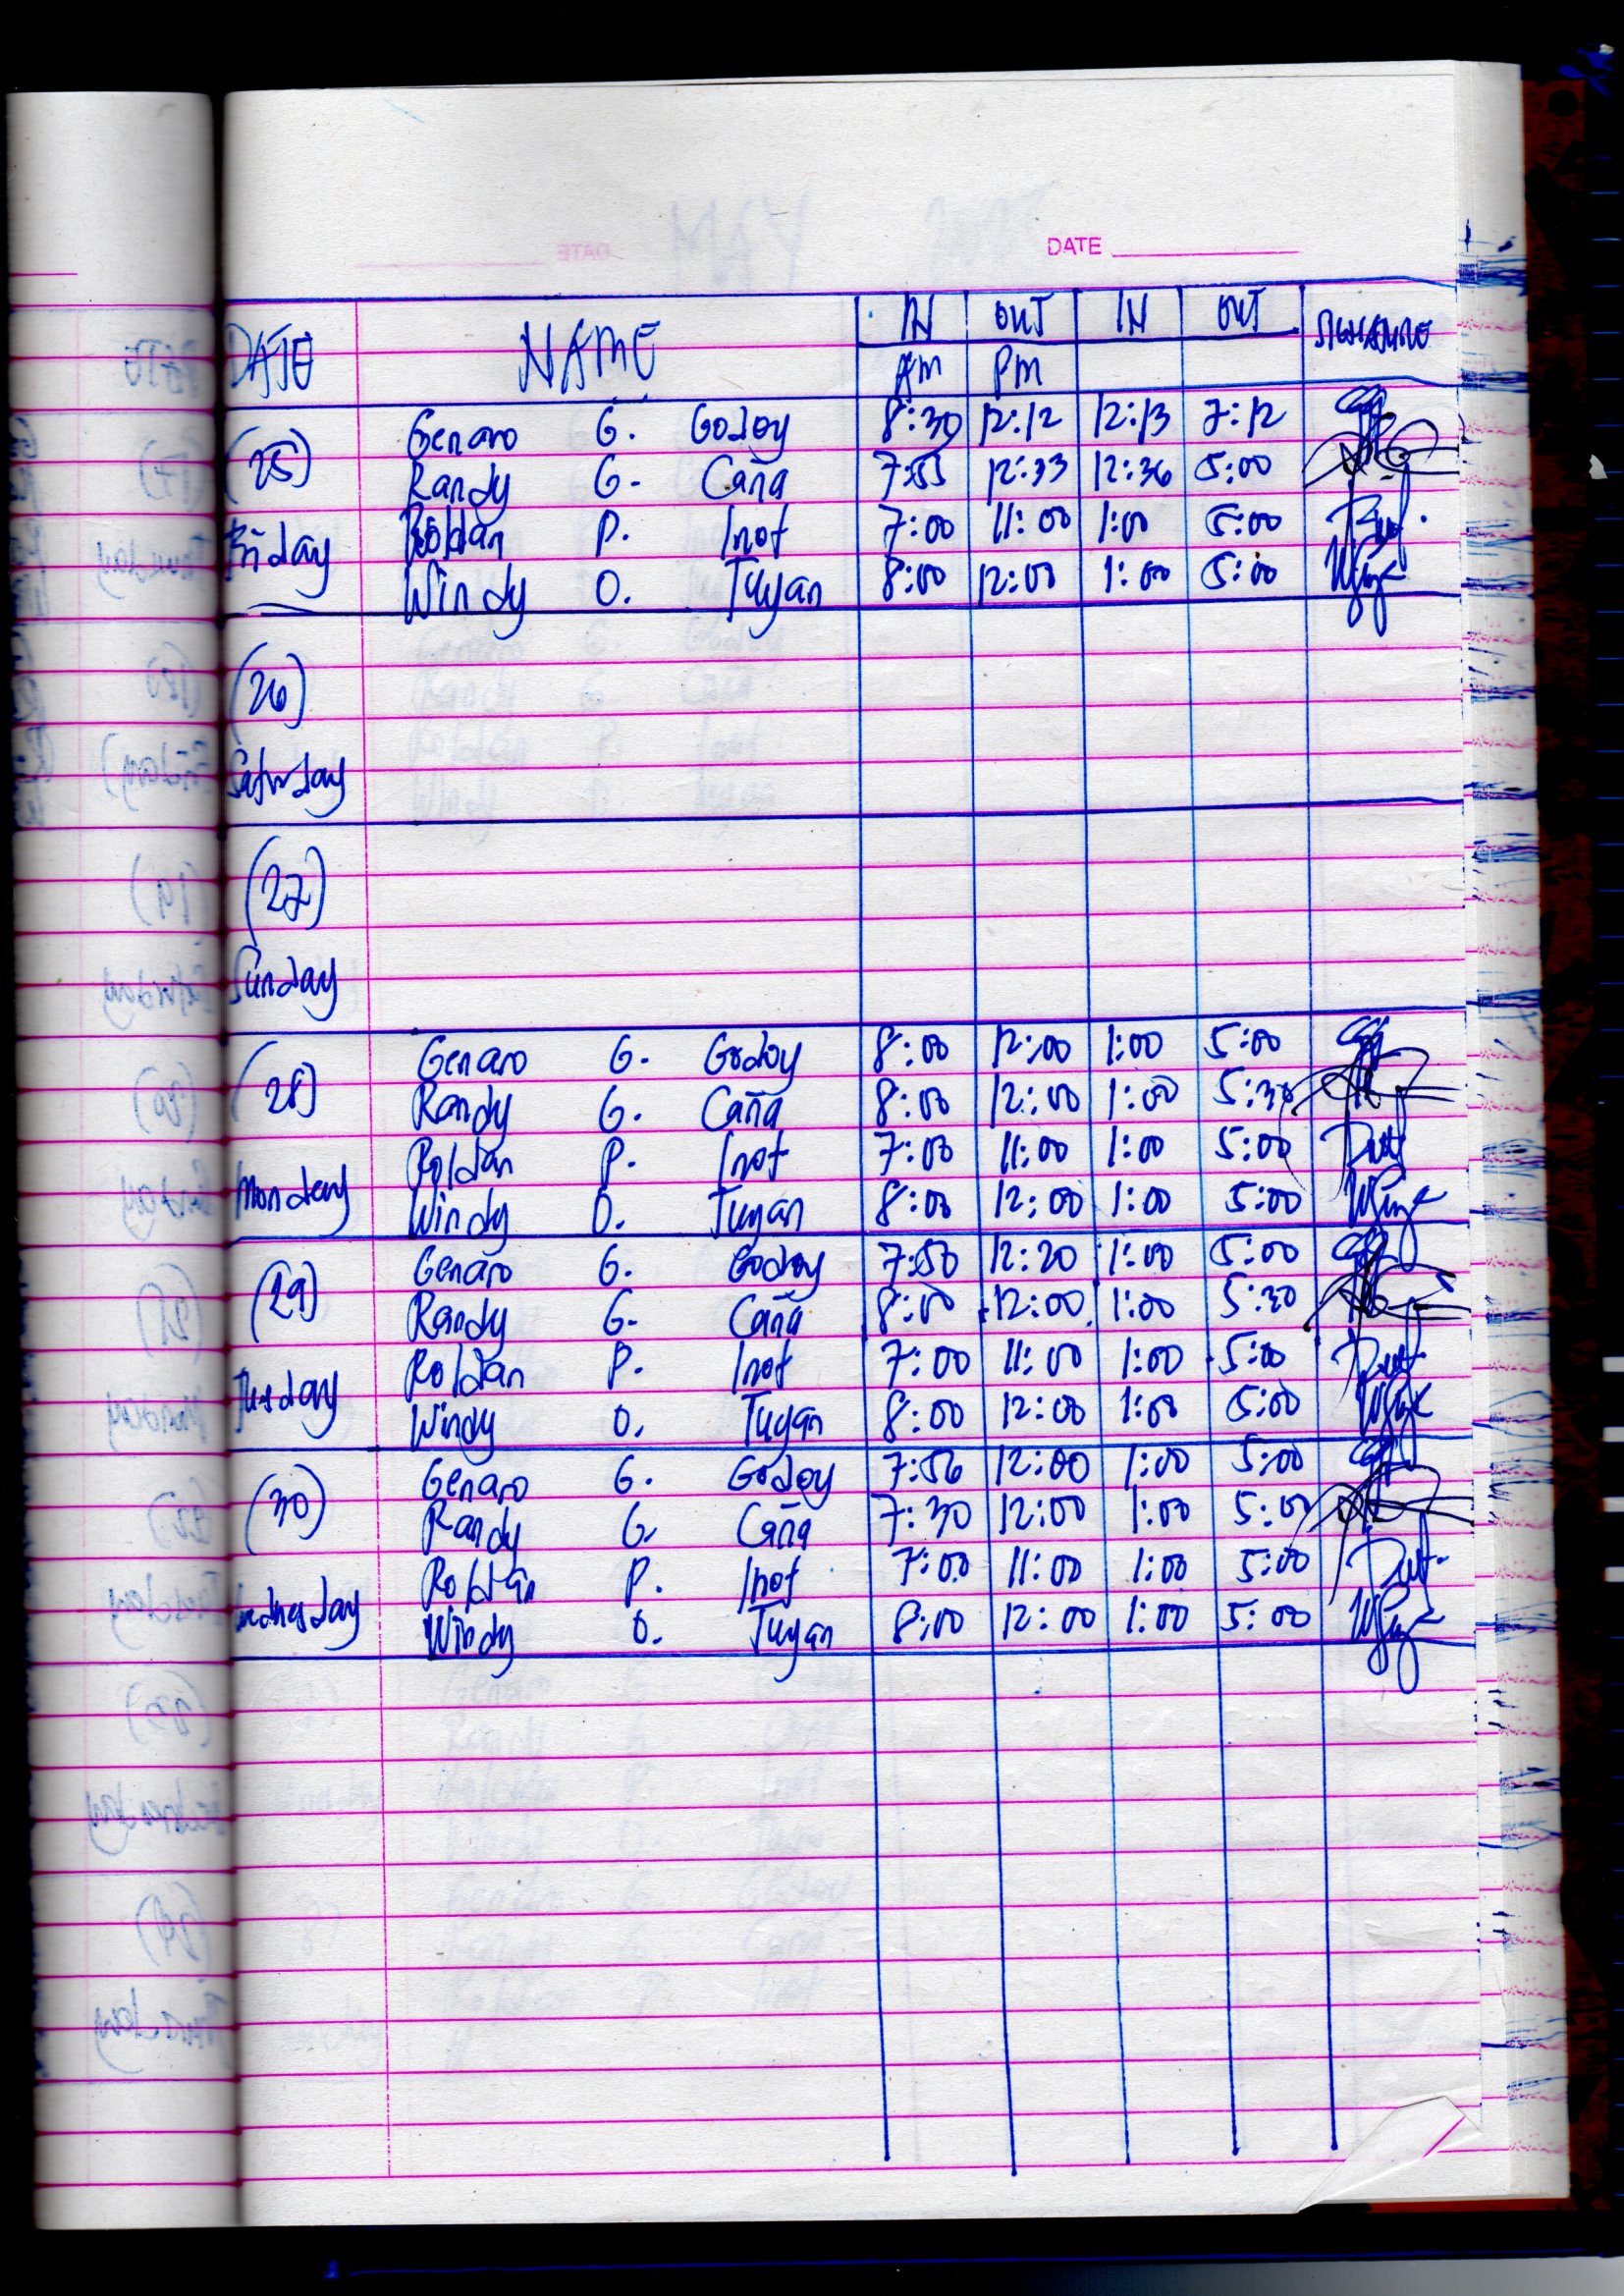 DATE
DATE NAME IN OUT IN OUT
AM PM
(25) Genaro G. Godoy 8:30 12:12 12:13 7:12
Randy G. Caña 7:55 12:33 12:36 5:00
Friday Roldan P. Inot 7:00 11:00 1:00 5:00
Windy O. Tuyan 8:00 12:00 1:00 5:00
(26)
Saturday
(27)
Sunday
(28) Genaro G. Godoy 8:00 12:00 1:00 5:00
Randy G. Caña 8:00 12:00 1:00 5:30
Roldan P. Inot 7:00 11:00 1:00 5:00
Monday Windy O. Tuyan 8:00 12:00 1:00 5:00
(29) Genaro G. Godoy 7:50 12:20 1:00 5:00
Randy G. Caña 8:00 12:00 1:00 5:30
Roldan P. Inot 7:00 11:00 1:00 5:00
Tuesday Windy O. Tuyan 8:00 12:00 1:00 5:00
(30) Genaro G. Godoy 7:56 12:00 1:00 5:00
Randy G. Caña 7:30 12:00 1:00 5:00
Roldan P. Inot 7:00 11:00 1:00 5:00
Wednesday Windy O. Tuyan 8:00 12:00 1:00 5:00